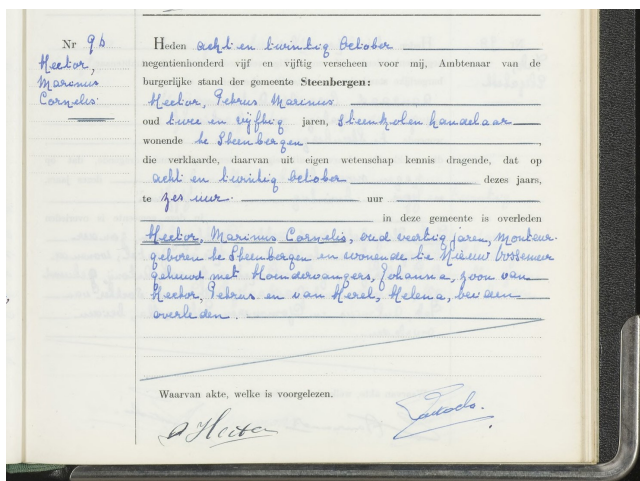 Nr 96
Hector,
Marinus
Cornelis.
Heden acht en twintig October
negentienhonderd vijf en vijftig verscheen voor mij, Ambtenaar van de
burgerlijke stand der gemeente Steenbergen:
Hector, Petrus Marinus
oud twee en vijftig jaren, steenkolen handelaar
wonende te Steenbergen,
die verklaarde, daarvan uit eigen wetenschap kennis dragende, dat op
acht en twintig October dezes jaars,
te zes uur. uur
in deze gemeente is overleden
Hector, Marinus Cornelis, oud veertig jaren, monteur.
geboren te Steenbergen en wonende te Nieuw Vossemeer
gehuwd met Hoendervangers, Johanna, zoon van
Hector, Petrus en van Herel, Helena, beiden
overleden.
Waarvan akte, welke is voorgelezen.
Hector